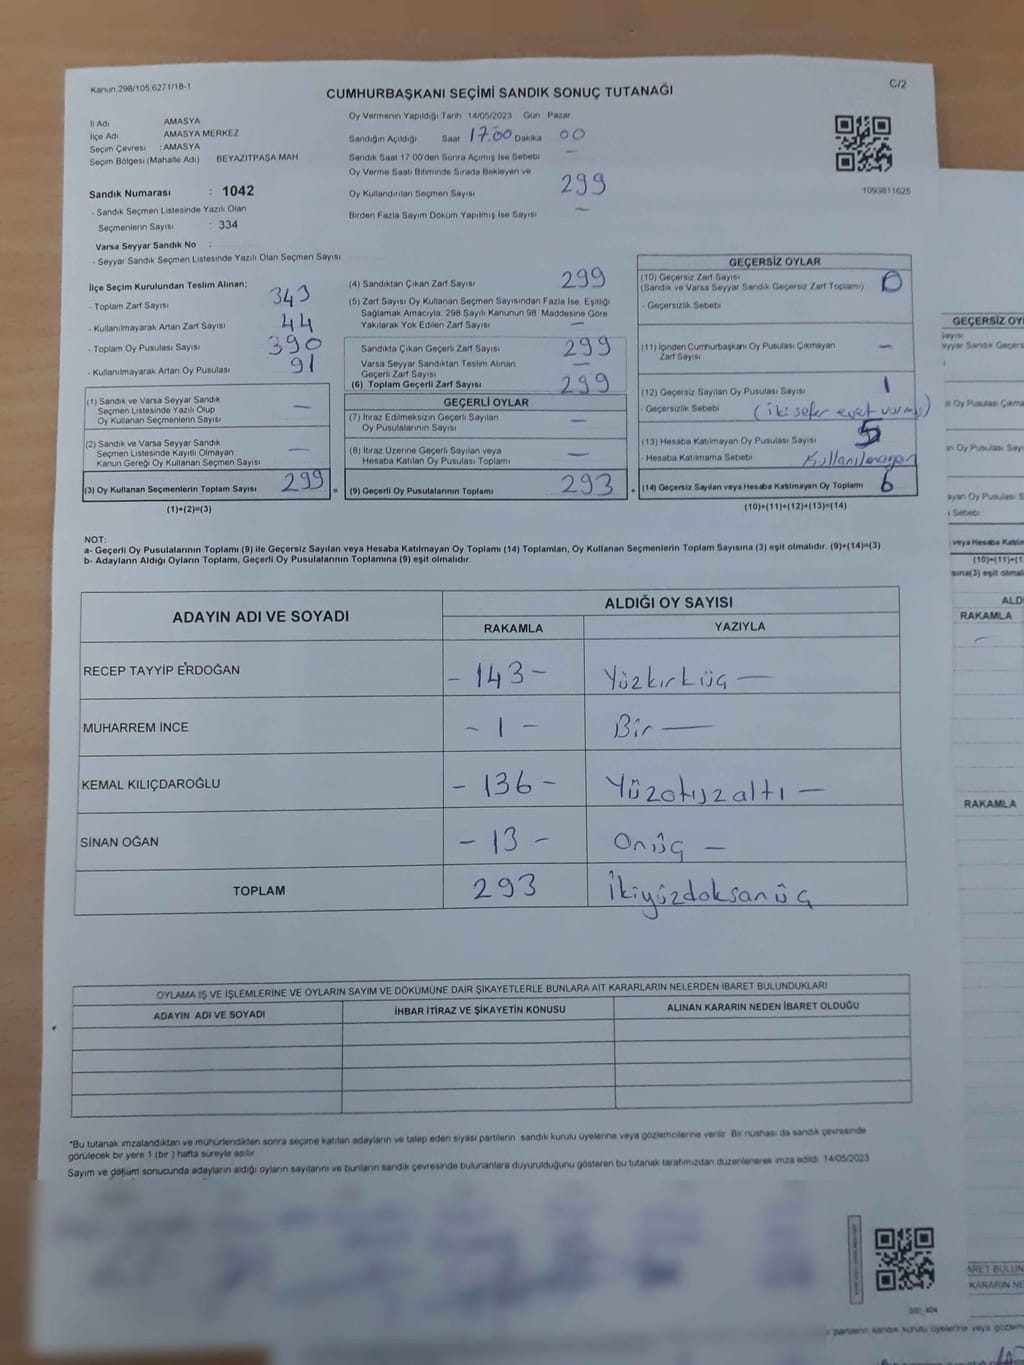 Kanun:298/105 6271/18-1
C/2
CUMHURBAŞKANI SEÇİMİ SANDIK SONUÇ TUTANAĞI
İl Adı AMASYA
İlçe Adı AMASYA MERKEZ
Seçim Çevresi : AMASYA
Seçim Bölgesi (Mahalle Adı) BEYAZITPAŞA MAH
Sandık Numarası : 1042
- Sandık Seçmen Listesinde Yazılı Olan
Seçmenlerin Sayısı : 334
Varsa Seyyar Sandık No :
- Seyyar Sandık Seçmen Listesinde Yazılı Olan Seçmen Sayısı
Oy Vermenin Yapıldığı Tarih 14/05/2023 Gün Pazar
Sandığın Açıldığı Saat 17.00 Dakika 00
Sandık Saat 17 00'den Sonra Açımış İse Sebebi —
Oy Verme Saati Bitiminde Sırada Bekleyen ve
Oy Kullandırılan Seçmen Sayısı 299
Birden Fazla Sayım Döküm Yapılmış İse Sayısı —
1093611625
İlçe Seçim Kurulundan Teslim Alınan;
- Toplam Zarf Sayısı 343
- Kullanılmayarak Artan Zarf Sayısı 44
- Toplam Oy Pusulası Sayısı 390
- Kullanılmayarak Artan Oy Pusulası 91
(1) Sandık ve Varsa Seyyar Sandık
Seçmen Listesinde Yazılı Olup
Oy Kullanan Seçmenlerin Sayısı —
(2) Sandık ve Varsa Seyyar Sandık
Seçmen Listesinde Kayıtlı Olmayan
Kanun Gereği Oy Kullanan Seçmen Sayısı —
(3) Oy Kullanan Seçmenlerin Toplam Sayısı 299 =
(1)+(2)=(3)
(4) Sandıktan Çıkan Zarf Sayısı 299
(5) Zarf Sayısı Oy Kullanan Seçmen Sayısından Fazla İse, Eşitliği
Sağlamak Amacıyla, 298 Sayılı Kanunun 98. Maddesine Göre
Yakılarak Yok Edilen Zarf Sayısı —
Sandıkta Çıkan Geçerli Zarf Sayısı 299
Varsa Seyyar Sandıktan Teslim Alınan
Geçerli Zarf Sayısı —
(6) Toplam Geçerli Zarf Sayısı 299
GEÇERLİ OYLAR
(7) İtiraz Edilmeksizin Geçerli Sayılan
Oy Pusulalarının Sayısı —
(8) İtiraz Üzerine Geçerli Sayılan veya
Hesaba Katılan Oy Pusulası Toplamı —
(9) Geçerli Oy Pusulalarının Toplamı 293 +
GEÇERSİZ OYLAR
(10) Geçersiz Zarf Sayısı
(Sandık ve Varsa Seyyar Sandık Geçersiz Zarf Toplamı) 0
- Geçersizlik Sebebi
(11) İçinden Cumhurbaşkanı Oy Pusulası Çıkmayan
Zarf Sayısı —
(12) Geçersiz Sayılan Oy Pusulası Sayısı 1
- Geçersizlik Sebebi (iki sefer evet vurmuş)
(13) Hesaba Katılmayan Oy Pusulası Sayısı 5
- Hesaba Katılmama Sebebi Kullanılmayan
(14) Geçersiz Sayılan veya Hesaba Katılmayan Oy Toplamı 6
(10)+(11)+(12)+(13)=(14)
NOT:
a- Geçerli Oy Pusulalarının Toplamı (9) ile Geçersiz Sayılan veya Hesaba Katılmayan Oy Toplamı (14) Toplamları, Oy Kullanan Seçmenlerin Toplam Sayısına (3) eşit olmalıdır. (9)+(14)=(3)
b- Adayların Aldığı Oyların Toplamı, Geçerli Oy Pusulalarının Toplamına (9) eşit olmalıdır.
ADAYIN ADI VE SOYADI
ALDIĞI OY SAYISI
RAKAMLA YAZIYLA
RECEP TAYYİP ERDOĞAN - 143 - Yüzkırküç —
MUHARREM İNCE - 1 - Bir —
KEMAL KILIÇDAROĞLU - 136 - Yüzotuzaltı —
SİNAN OĞAN - 13 - Onüç —
TOPLAM 293 İkiyüzdoksanüç
OYLAMA İŞ VE İŞLEMLERİNE VE OYLARIN SAYIM VE DÖKÜMÜNE DAİR ŞİKAYETLERLE BUNLARA AİT KARARLARIN NELERDEN İBARET BULUNDUKLARI
ADAYIN ADI VE SOYADI İHBAR İTİRAZ VE ŞİKAYETİN KONUSU ALINAN KARARIN NEDEN İBARET OLDUĞU
*Bu tutanak imzalandıktan ve mühürlendikten sonra seçime katılan adayların ve talep eden siyasi partilerin sandık kurulu üyelerine veya gözlemcilerine verilir. Bir nüshası da sandık çevresinde
görülecek bir yere 1 (bir) hafta süreyle asılır.
Sayım ve döküm sonucunda adayların aldığı oyların sayılarını ve bunların sandık çevresinde bulunanlara duyurulduğunu gösteren bu tutanak tarafımızdan düzenlenerek imza edildi. 14/05/2023
GEÇERSİZ OY
(10)+(11)+(1
sına(3) eşit olmal
ALD
RAKAMLA
RAKAMLA
ARET BULUN
KARARIN NE
partilerin sandık kurulu üyelerine veya gözlem